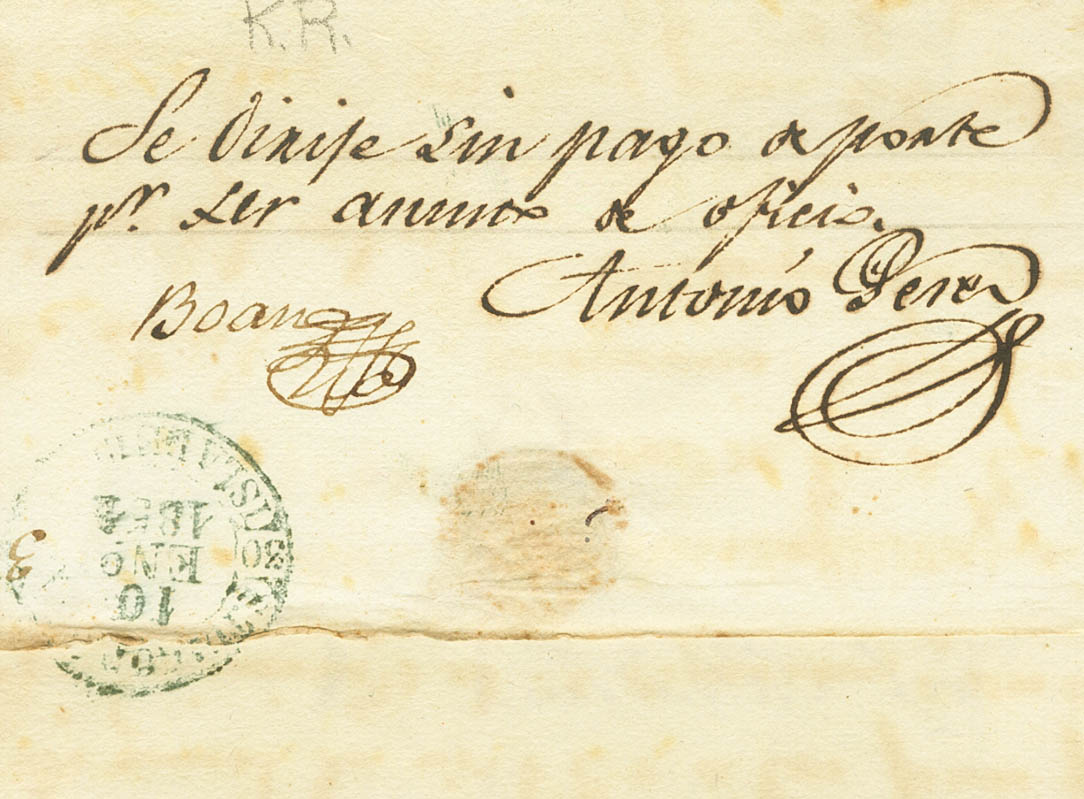 K.R.
Se dirije sin pago de porte
pr. ser asunto de oficio.
Antonio Perez
10
ENO
3